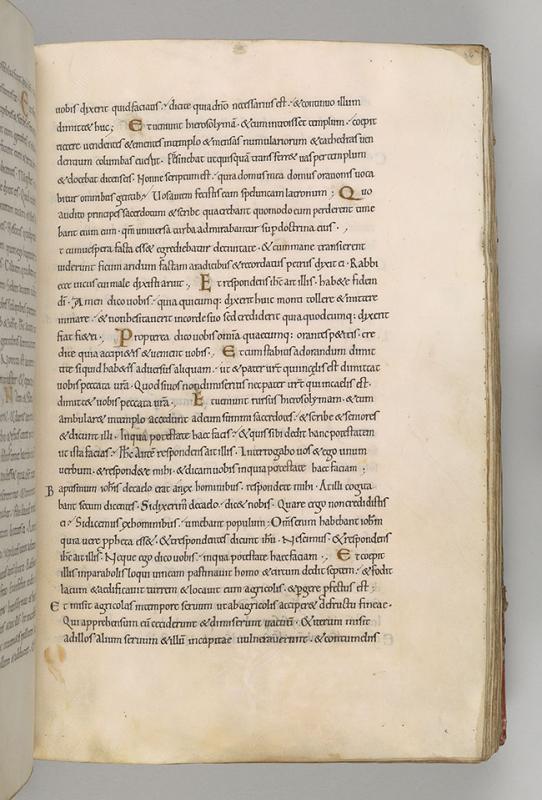 uobis dixerit quid facitis: dicite quia dño necessarius est: & continuo illum
dimitt& huc; Et ueniunt hierosolymã. & cum introiss& templum: coepit
eicere uendentes & ementes in templo & mensas numulariorum & cathedras uen
dentium columbas euertit. & non sinebat ut quisquã transferr& uas per templum
& docebat dicens eis. Nonne scriptum est: quia domus mea domus orationis uoca
bitur omnibus gentib; Vos autem fecistis eam speluncam latronum; Quo
audito principes sacerdotum & scribe querebant quomodo eum perderent time
bant enim eum. qm̃ uniuersa turba admirabatur su doctrina eius.,
t cum uespera facta ess& egrediebatur de ciuitate. & cum mane transierent
uiderunt ficum aridum factam a radicibus & recordatus petrus dixit ei. Rabbi
ecce ficus cui male dixisti aruit., Et respondens ihc ait illis. hab&e fidem
dĩ. Amen dico uobis. quia quicumq: dixerit huic monti tollere & mittere
in mare. & non hesitauerit in corde suo sed crediderit quia quodcumq: dixerit
fiat fi& ei. Propterea dico uobis omĩa quaecumq: orantes petitis. cre
dite quia accipi&is & uenient uobis., Et cum stabitis ad orandum dimit
tite siquid hab&is aduersus aliquem. ut & pater ur̃ qui in celis est dimittat
uobis peccata ur̃a. Quod si uos non dimiseritis nec pater ur̃ qui in caelis est.
dimitt& uobis peccata ur̃a. Et ueniunt rursus hierosolymam. & cum
ambular& in templo accedunt ad eum summi sacerdotes. & scribe & seniores
& dicunt illi. In qua potestate haec facis. & quis tibi dedit hanc potestatem
ut ista facias. Ihc autẽ respondens ait illis. Interrogabo uos & ego unum
uerbum. & respond&e mihi. & dicam uobis in qua potestate haec faciam;
Baptismum iohis de caelo erat an ex hominibus. respond&e mihi. At illi cogita
bant secum dicentes. Si dixerim̃ de caelo. dic& nobis. Quare ergo non credidistis
ei. Si dicemus ex hominibus. timebant populum. Om̃s enim habebant iohm̃
quia uere ppheta ess&. & respondentes dicunt ihu. Nescimus. & respondens
ihc ait illis. Neque ego dico uobis. in qua potestate haec faciam., Et coepit
illis in parabolis loqui uineam pastinauit homo & circum dedit septem. & fodit
lacum & aedificauit turrem & locauit eam agricolis. & pegre pfectus est;
Et misit agricolis in tempore seruum ut ab agricolis acciper& de fructu fineae.
Qui apprehensum eũ ceciderunt & dimiserunt uacuũ. & iterum misit
ad illos alium seruum & illũ in capite uulnerauerunt. & contumeliis